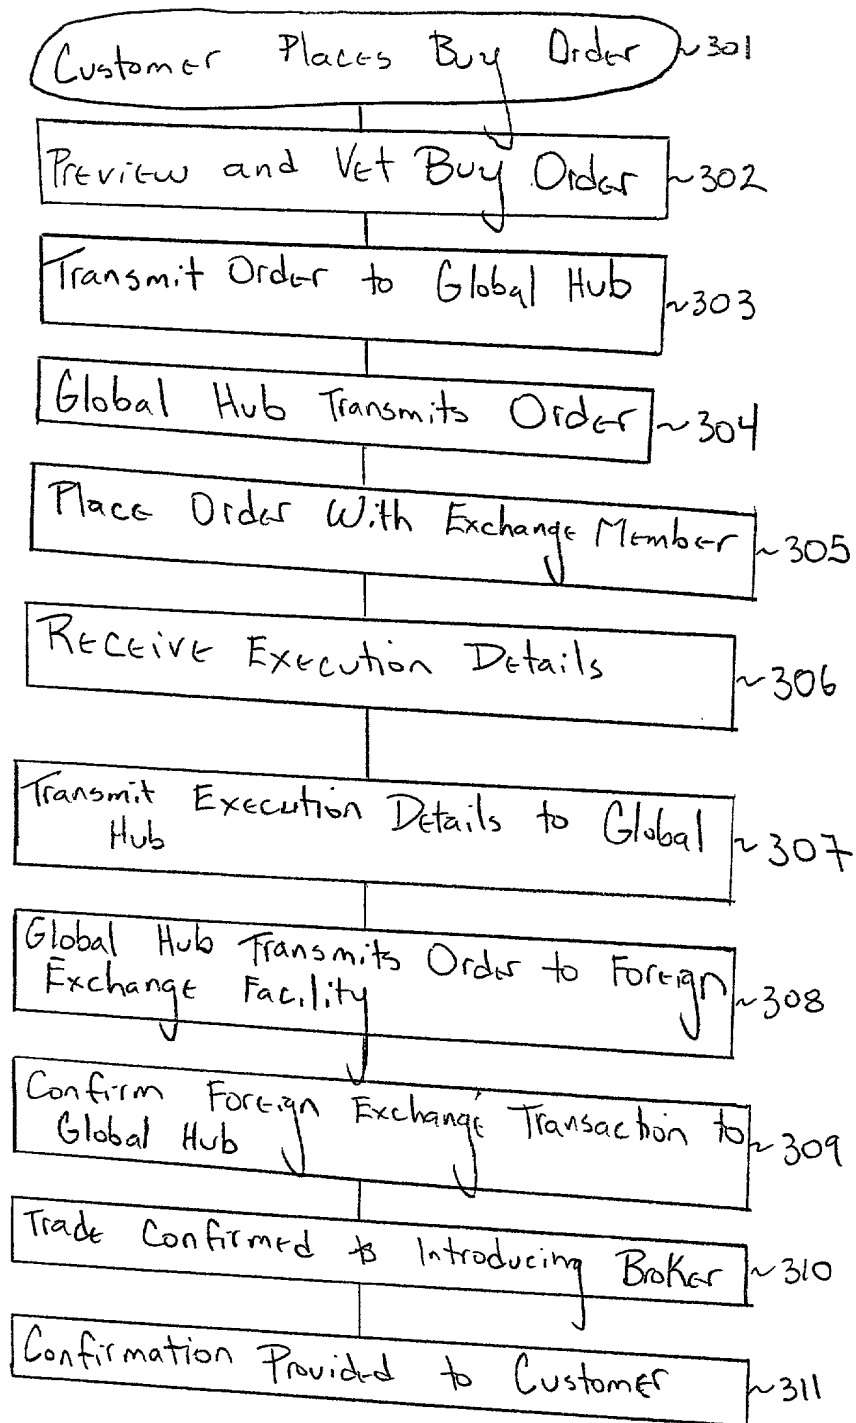 Customer Places Buy Order ~301
Preview and Vet Buy Order ~302
Transmit Order to Global Hub ~303
Global Hub Transmits Order ~304
Place Order With Exchange Member ~305
Receive Execution Details ~306
Transmit Execution Details to Global
Hub ~307
Global Hub Transmits Order to Foreign
Exchange Facility ~308
Confirm Foreign Exchange Transaction to
Global Hub ~309
Trade Confirmed to Introducing Broker ~310
Confirmation Provided to Customer ~311